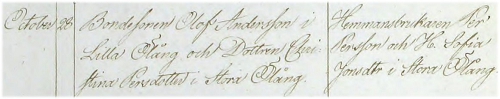 October 28 Bondesonen Olof Andersson i
Lilla Öläng och Dottren Chri
stina Persdotter i Stora Öläng.
Hemmansbrukaren Per
Persson och H. Sofia
Jonsdtr i Stora Öläng